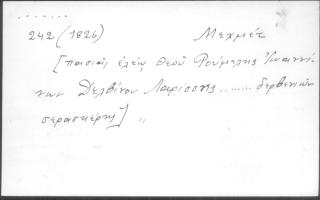 242 (1826) Μεχμέτ
[πασιᾶς ἐλέῳ θεοῦ Ρούμελης Ἰωαννί-
νων Δελβίνου Λαρίσσης ........ δερβενίων
σερασκέρης] ,,